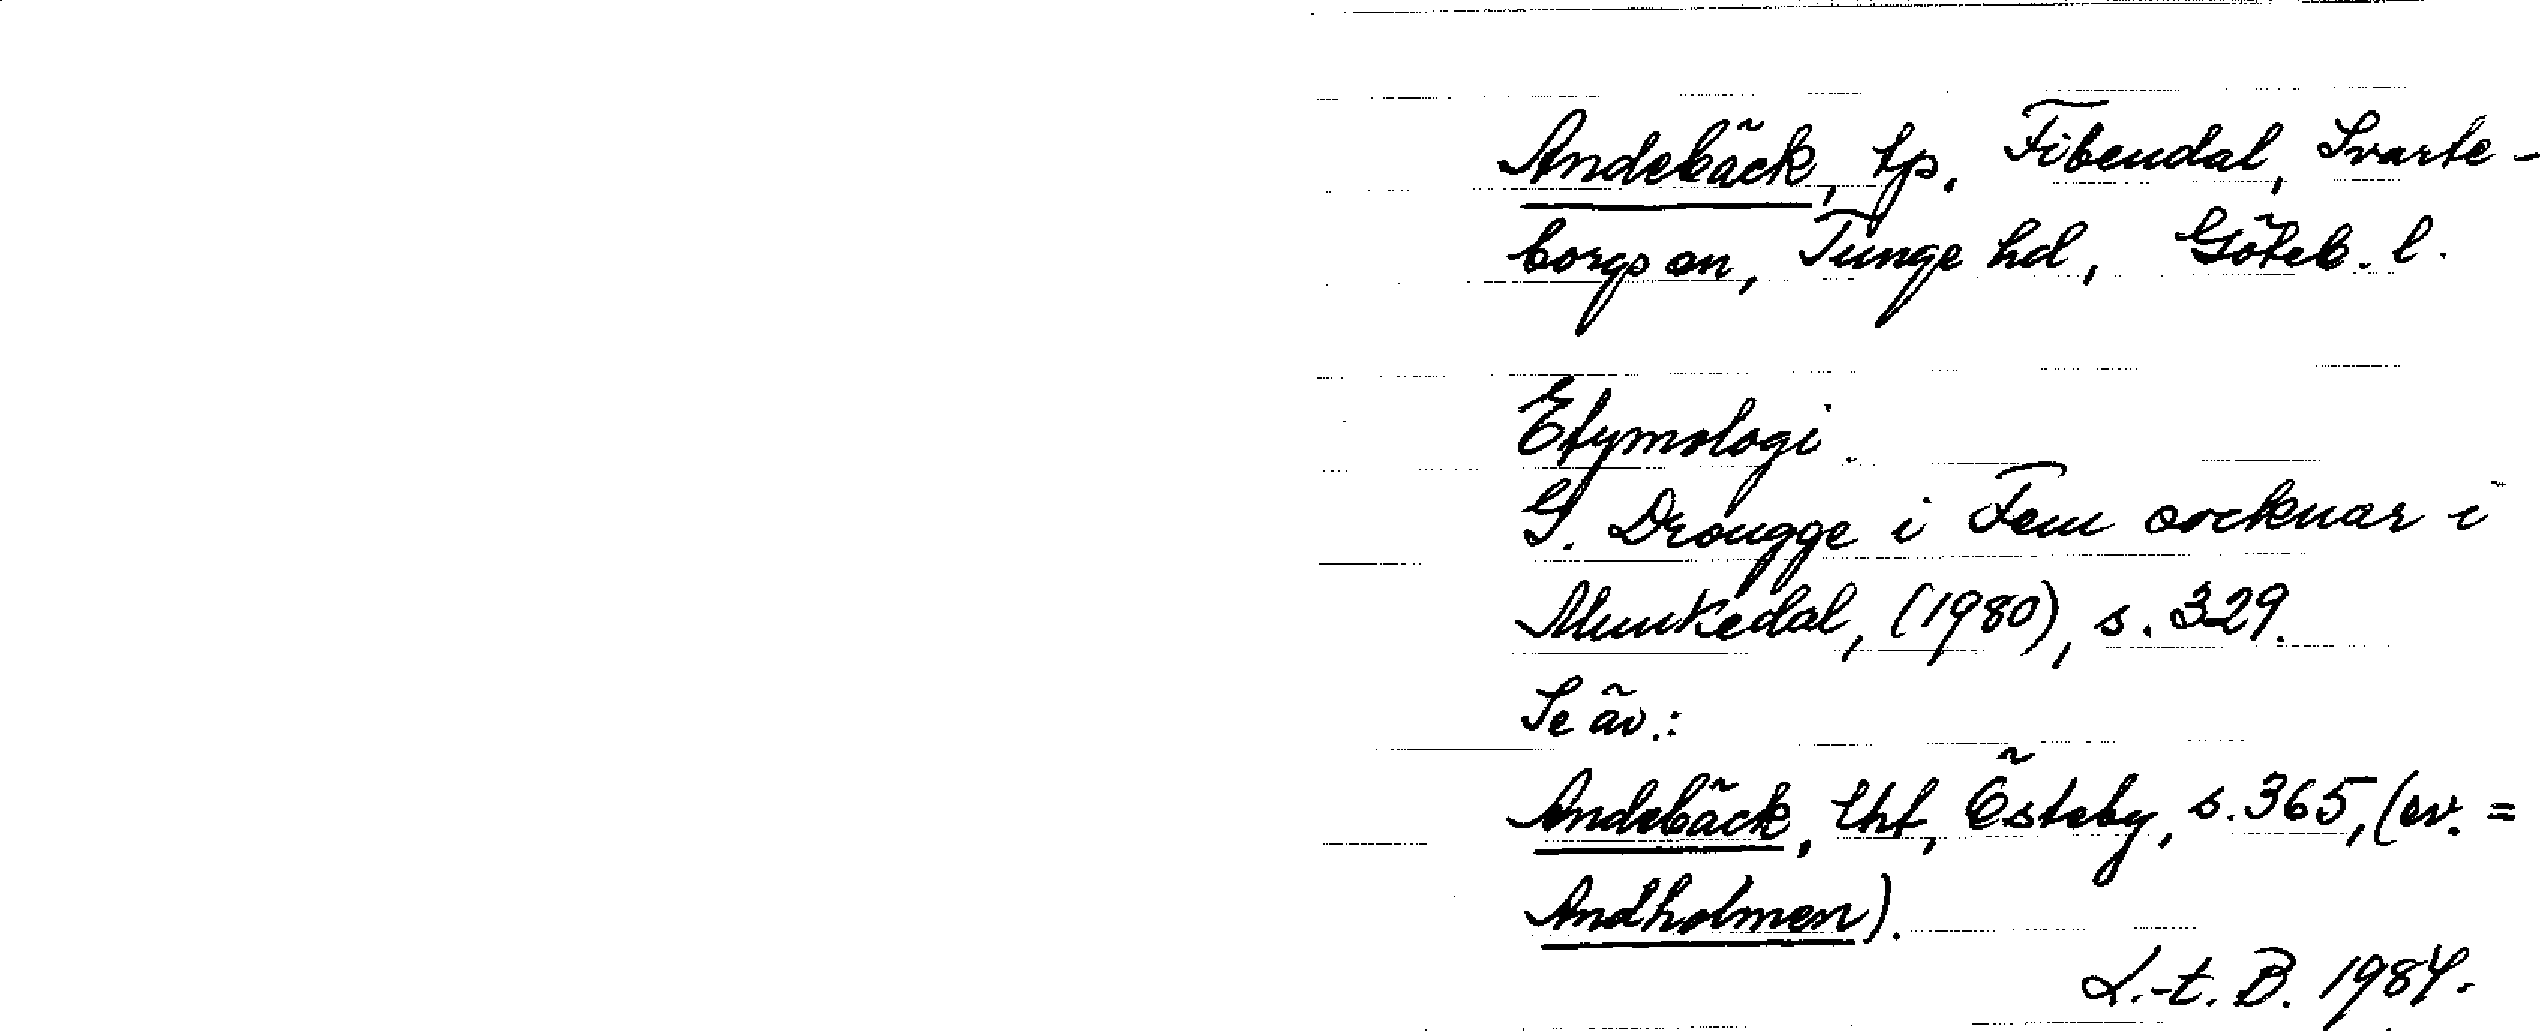 Andebäck, tp, Fibendal, Svarte-
borgs sn, Tunge hd, Göteb. l.
Etymologi.
G. Drougge i Fem socknar i
Munkedal, (1980), s. 329.
Se äv.:
Andebäck, lht, Östeby, s. 365, (ev. =
Andholmen).
L.-t. B. 1984.